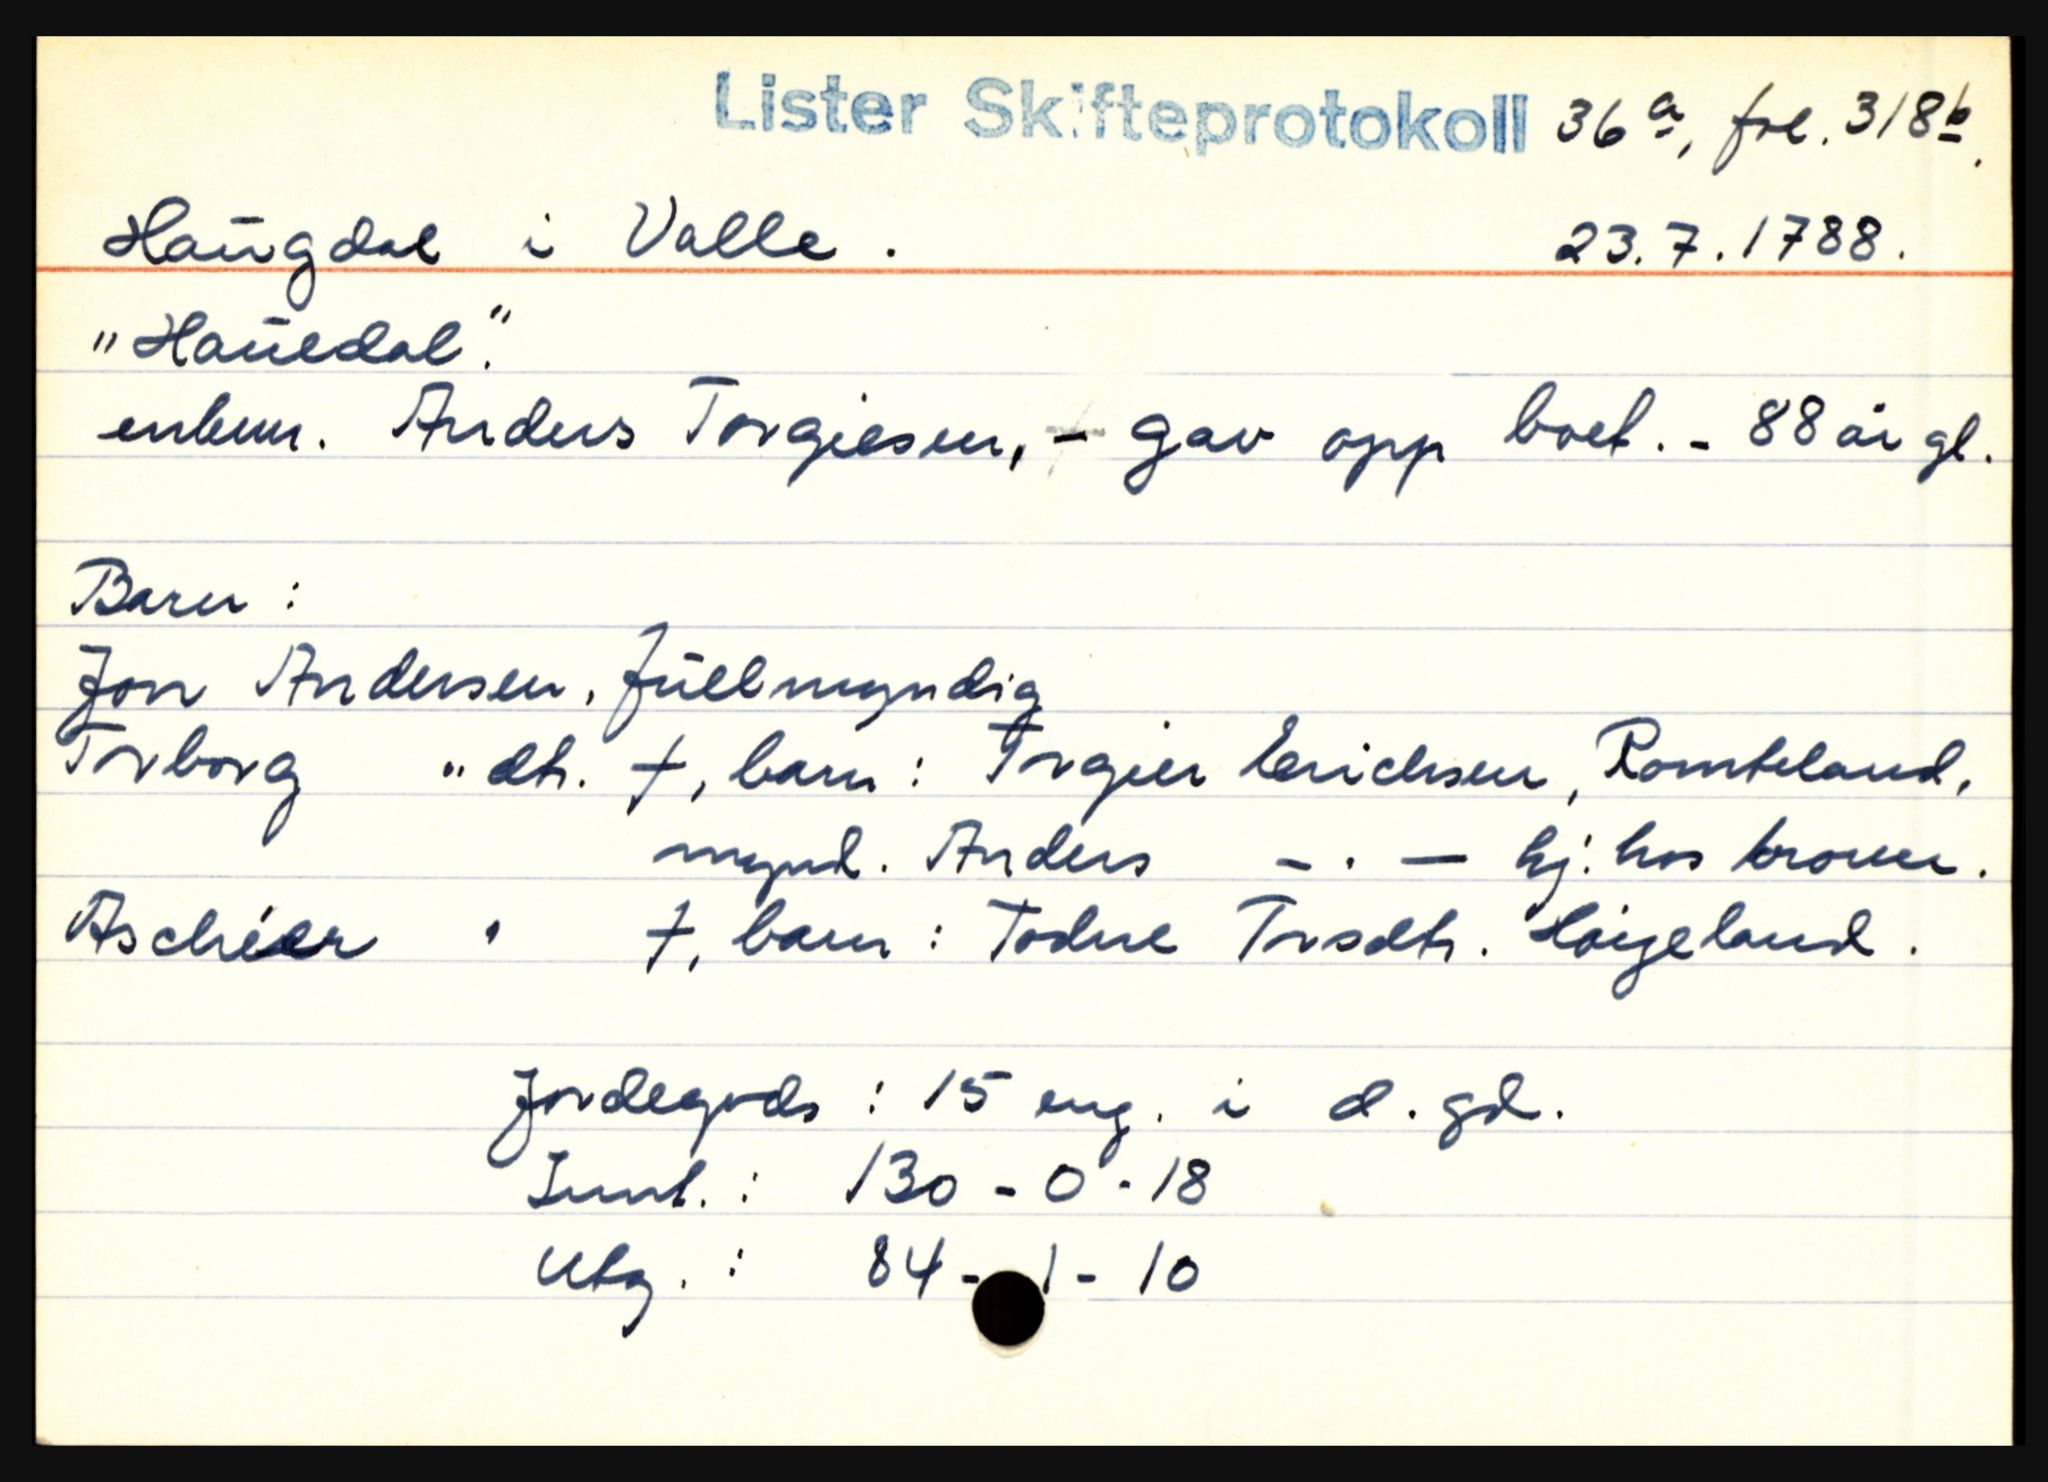 Lister Skifteprotokoll 36a, fol. 318b.
Haugdal i Valle. 23.7.1788.
"Hauedal".
enkem. Anders Torgiesen, - gav opp boet. - 88 år gl.
Barn:
Jon Andersen, fullmyndig
Torborg " dtr. †, barn: Torgier Erichsen, Romteland,
mynd. Anders - . - hj: hos broren.
Aschier " †, barn: Todne Torsdtr. Høigeland.
Jordegods: 15 eng. i d. gd.
Innt.: 130 - 0 - 18
Utg.: 84 - 1 - 10